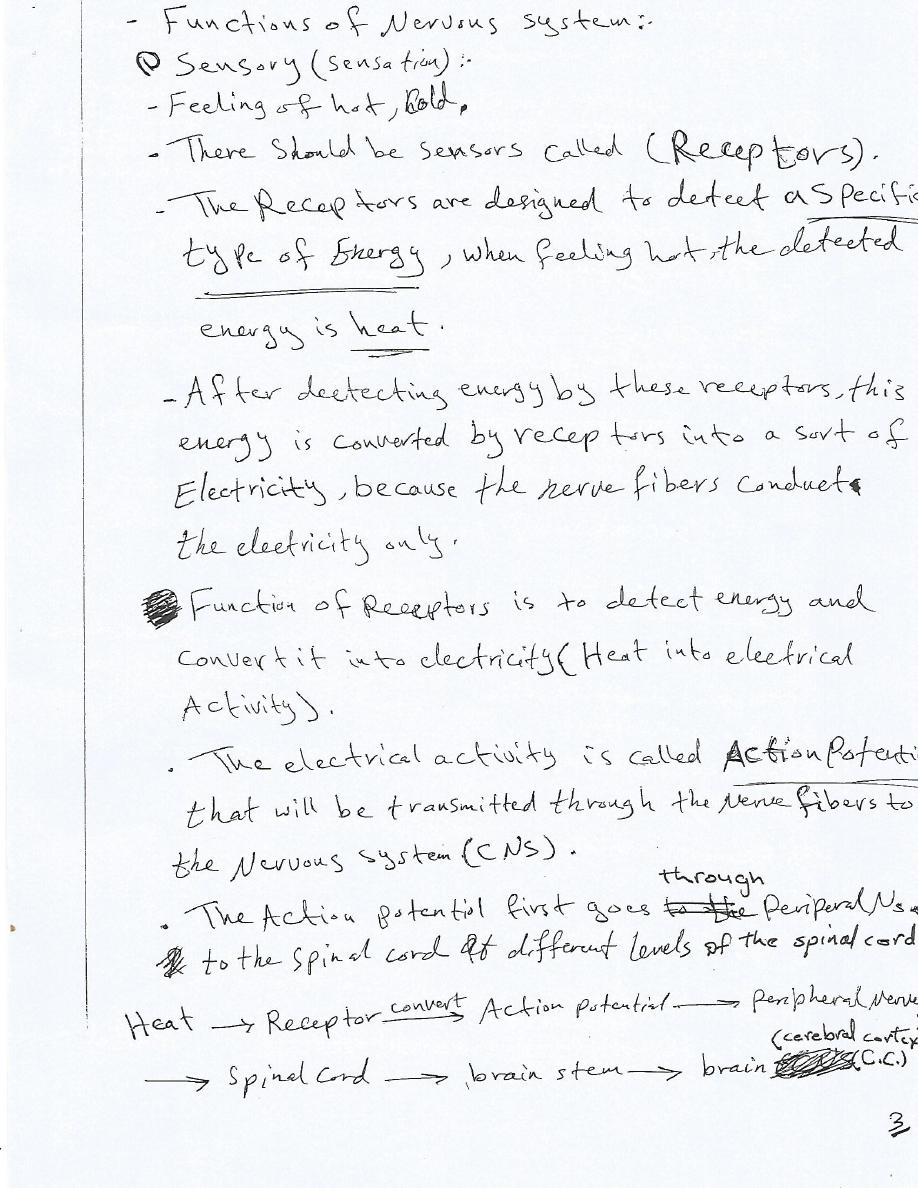 - Functions of Nervous system:-
① Sensory (sensation) :-
- Feeling of hot, Cold.
- There Should be sensors called (Receptors).
- The Receptors are designed to detect a Specific
type of Energy, when feeling hot, the detected
energy is heat.
- After deetecting energy by these receptors, this
energy is converted by receptors into a sort of
Electricity, because the nerve fibers conduct
the electricity only.
Function of Receptors is to detect energy and
convert it into electricity (Heat into electrical
Activity).
. The electrical activity is called Action Potenti
that will be transmitted through the Nerve fibers to
the Nervous system (CNS).
through
. The Action potential first goes to the Periperal Ns.
to the spinal cord at different levels of the spinal cord
Heat → Receptor convert → Action potential → Peripheral Nerve
(cerebral cortex
→ Spinal Cord → brain stem → brain (C.C.)
3